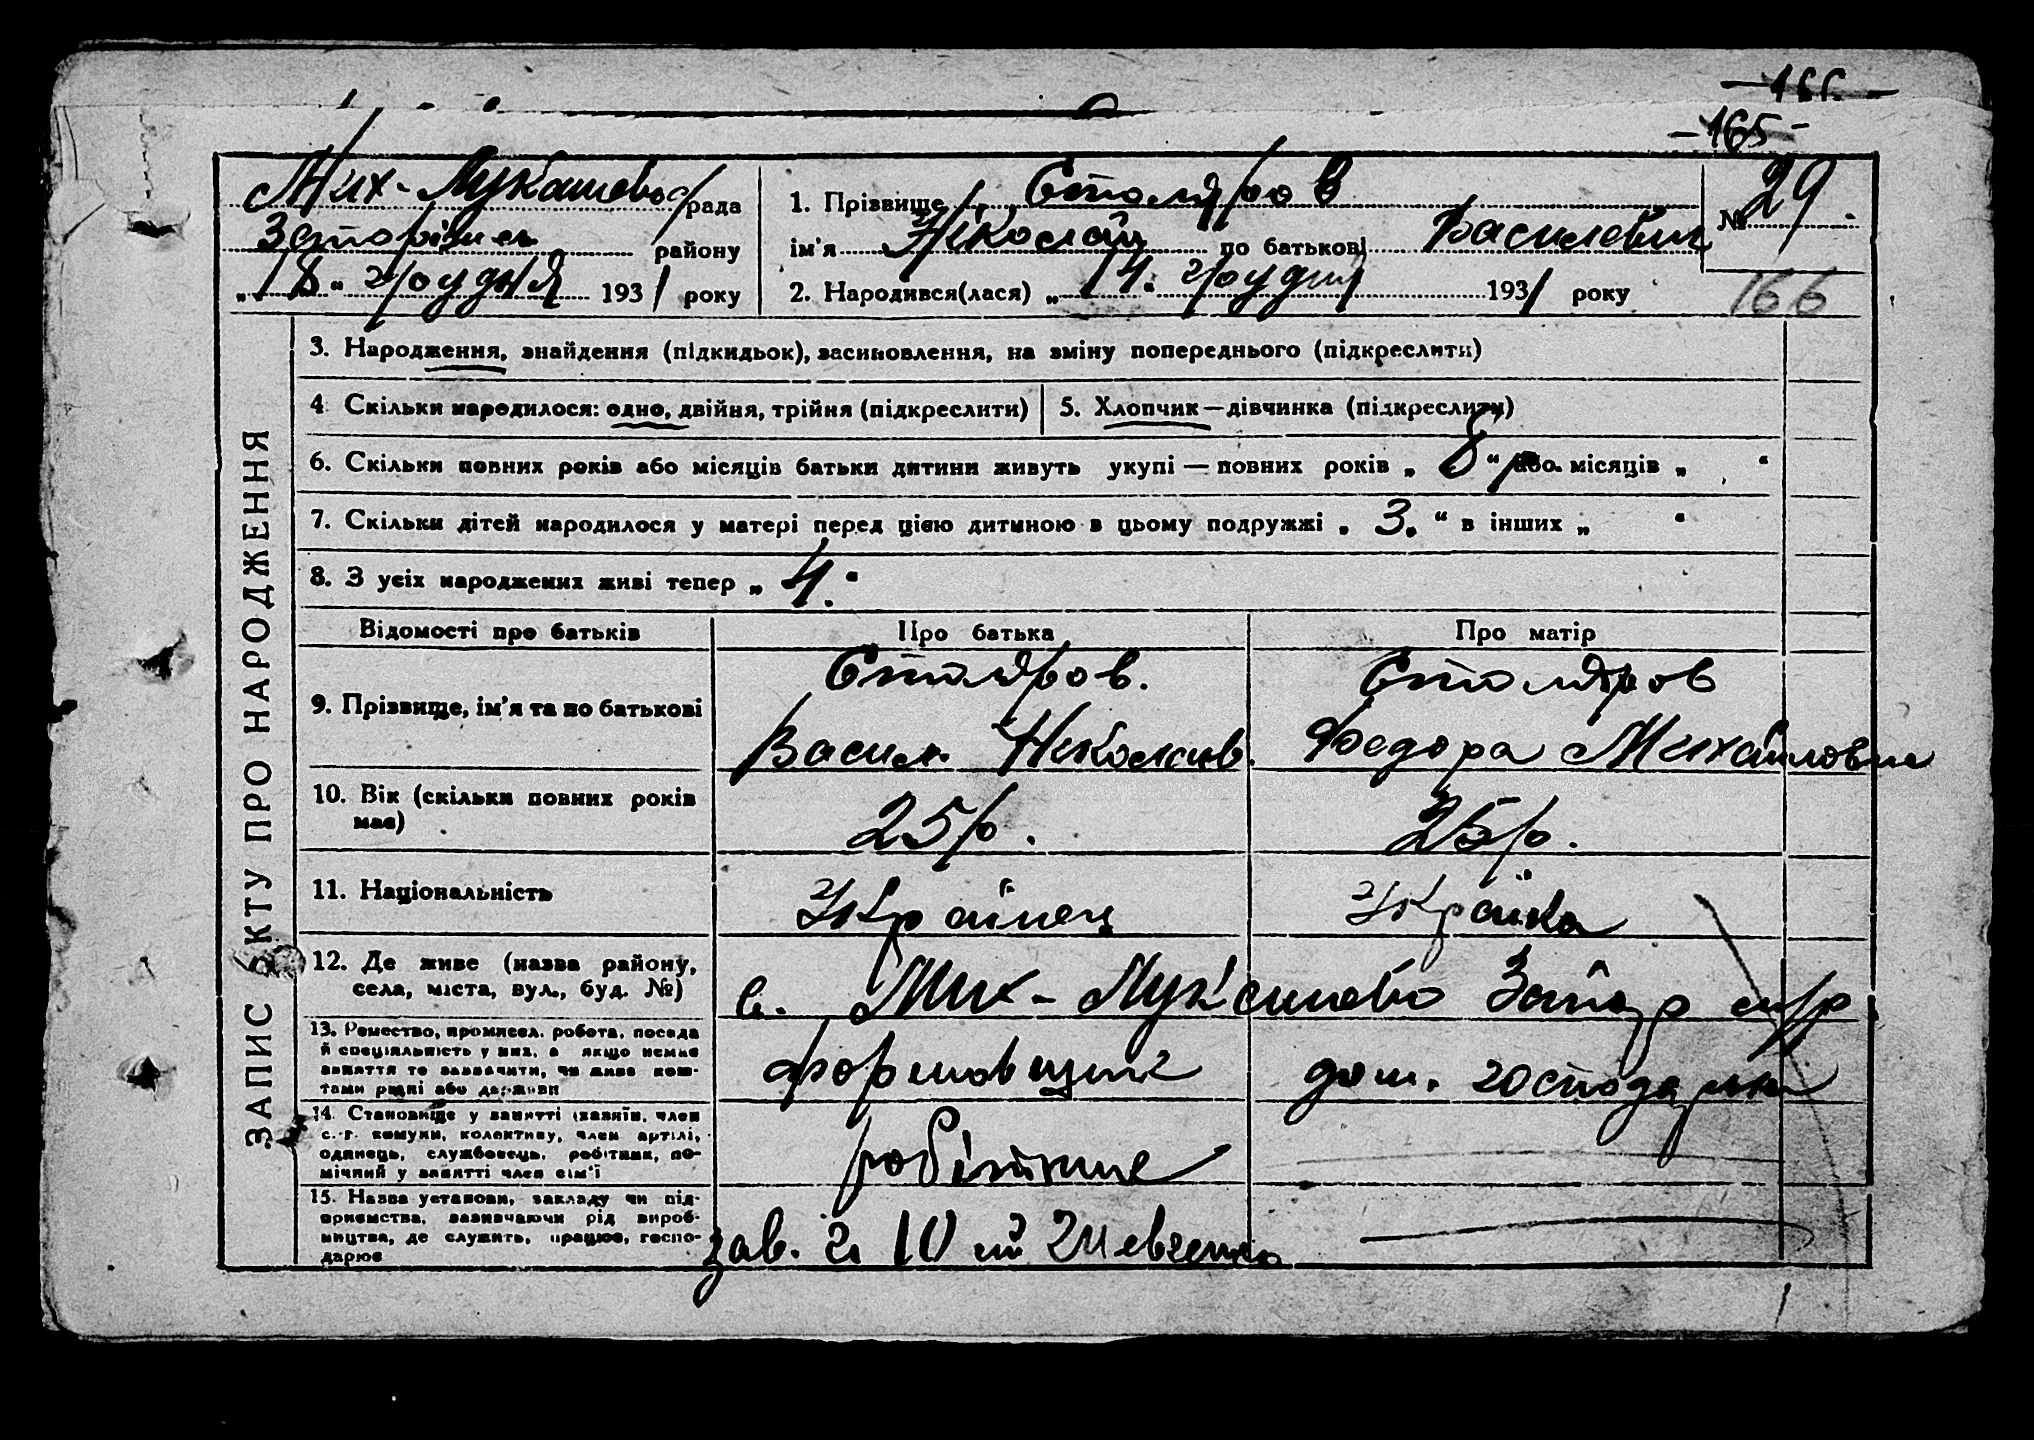 -166-
-165-
Мих-Лукашево с/рада
Запоріжск району
„18“ грудня 1931 року
1. Прізвище Столяров
ім'я Ніколай по батькові Василевич
2. Народився(лася) „14. грудня 1931 року
№ 29.
166
ЗАПИС АКТУ ПРО НАРОДЖЕННЯ
3. Народження, знайдення (підкидьок), засиновлення, на зміну попереднього (підкреслити)
4 Скільки народилося: одно, двійня, трійня (підкреслити)
5. Хлопчик—дівчинка (підкреслити)
6. Скільки повних років або місяців батьки дитини живуть укупі — повних років „ 8 “ р або місяців „ “
7. Скільки дітей народилося у матері перед цією дитиною в цьому подружжі „ 3. “ в інших „ “
8. З усіх народжених живі тепер „ 4. “
Відомості про батьків
Про батька
Про матір
9. Прізвище, ім'я та по батькові
Столяров.
Васил. Николаив.
Столяров
Федора Михайловна
10. Вік (скільки повних років має)
25 р.
25 р.
11. Національність
Українец
Українка
12. Де живе (назва району,
села, міста, вул., буд. №)
с. Мих-Лукашево
13. Ремество, промисел. робота, посада
й спеціяльність у них, а якщо немає
заняття то зазначити, чи живе кош-
тами рідні або держави
формовщик
дом. господарка
14. Становище у занятті (хазяїн, член
с.-г. комуни, колективу, член артілі,
одинець, службовець, робітник, по-
мічний у занятті член сім'ї
робітник
15. Назва установи, закладу чи під-
приємства, зазначаючи рід вироб-
ництва, де служить, працює, госпо-
дарює
зав. 10